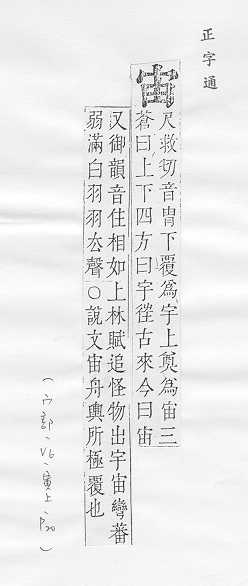 正字通
宙
尺救切音冑下覆爲宇上奠爲宙三
蒼曰上下四方曰宇徃古來今曰宙
又御韻音住相如上林賦追怪物出宇宙彎蕃
弱滿白羽羽厺聲○說文宙舟輿所極覆也
(宀部、V6、寅上、P20)